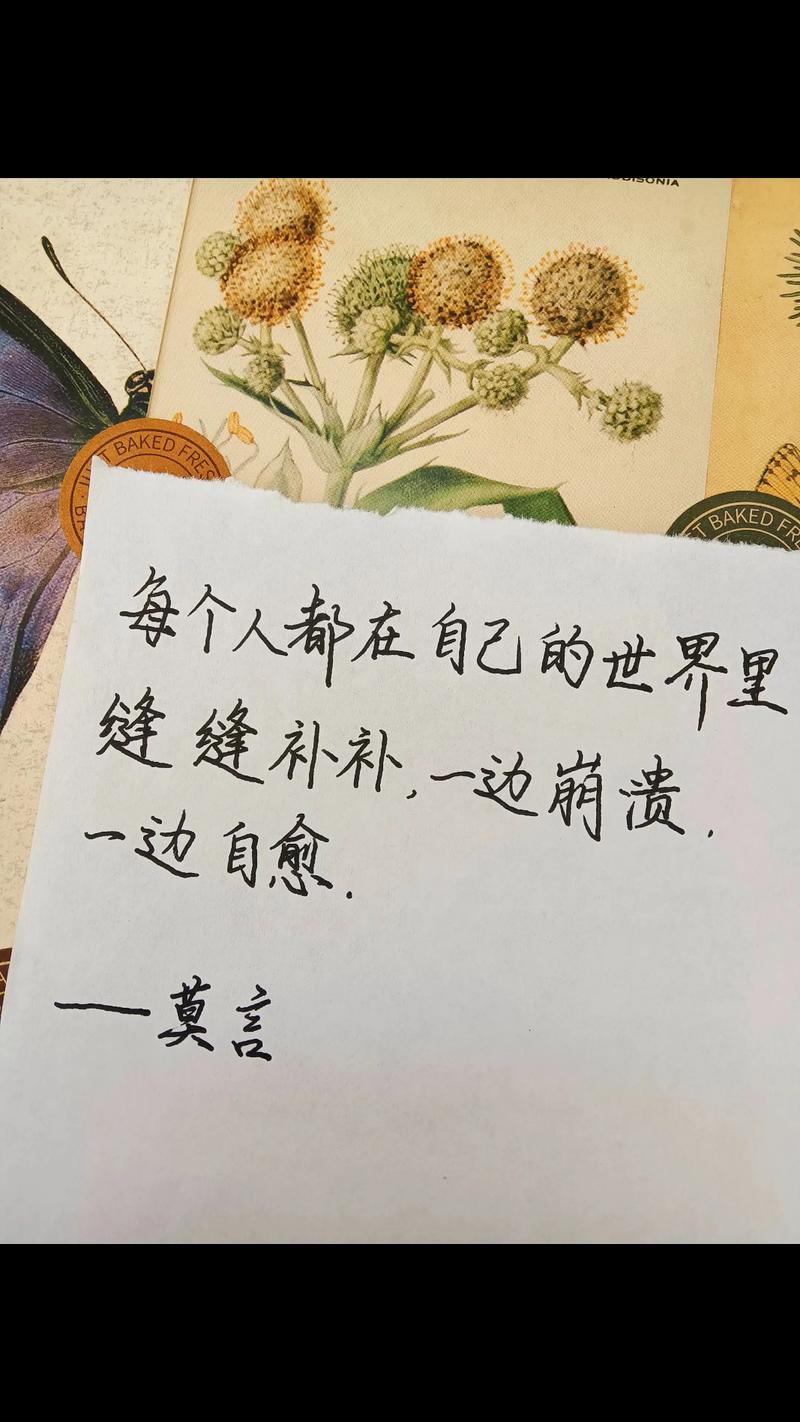 DISONIA
JUST BAKED FRES
T BAKED FRE
每个人都在自己的世界里
缝缝补补,一边崩溃,
一边自愈.
——莫言